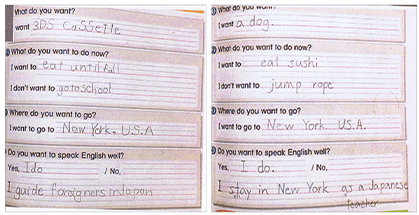 What do you want?
want 3DS Cassette
What do you want to do now?
I want to eat until full
I don't want to go to school
Where do you want to go?
I want to go to New York, U.S.A
Do you want to speak English well?
Yes, I do / No,
I guide foreigners in Japan
① What do you want?
I want a dog.
② What do you want to do now?
I want to eat sushi
I don't want to jump rope
③ Where do you want to go?
I want to go to New York U.S.A.
Do you want to speak English well?
Yes, I do. / No,
I stay in New York as a Japanese
teacher